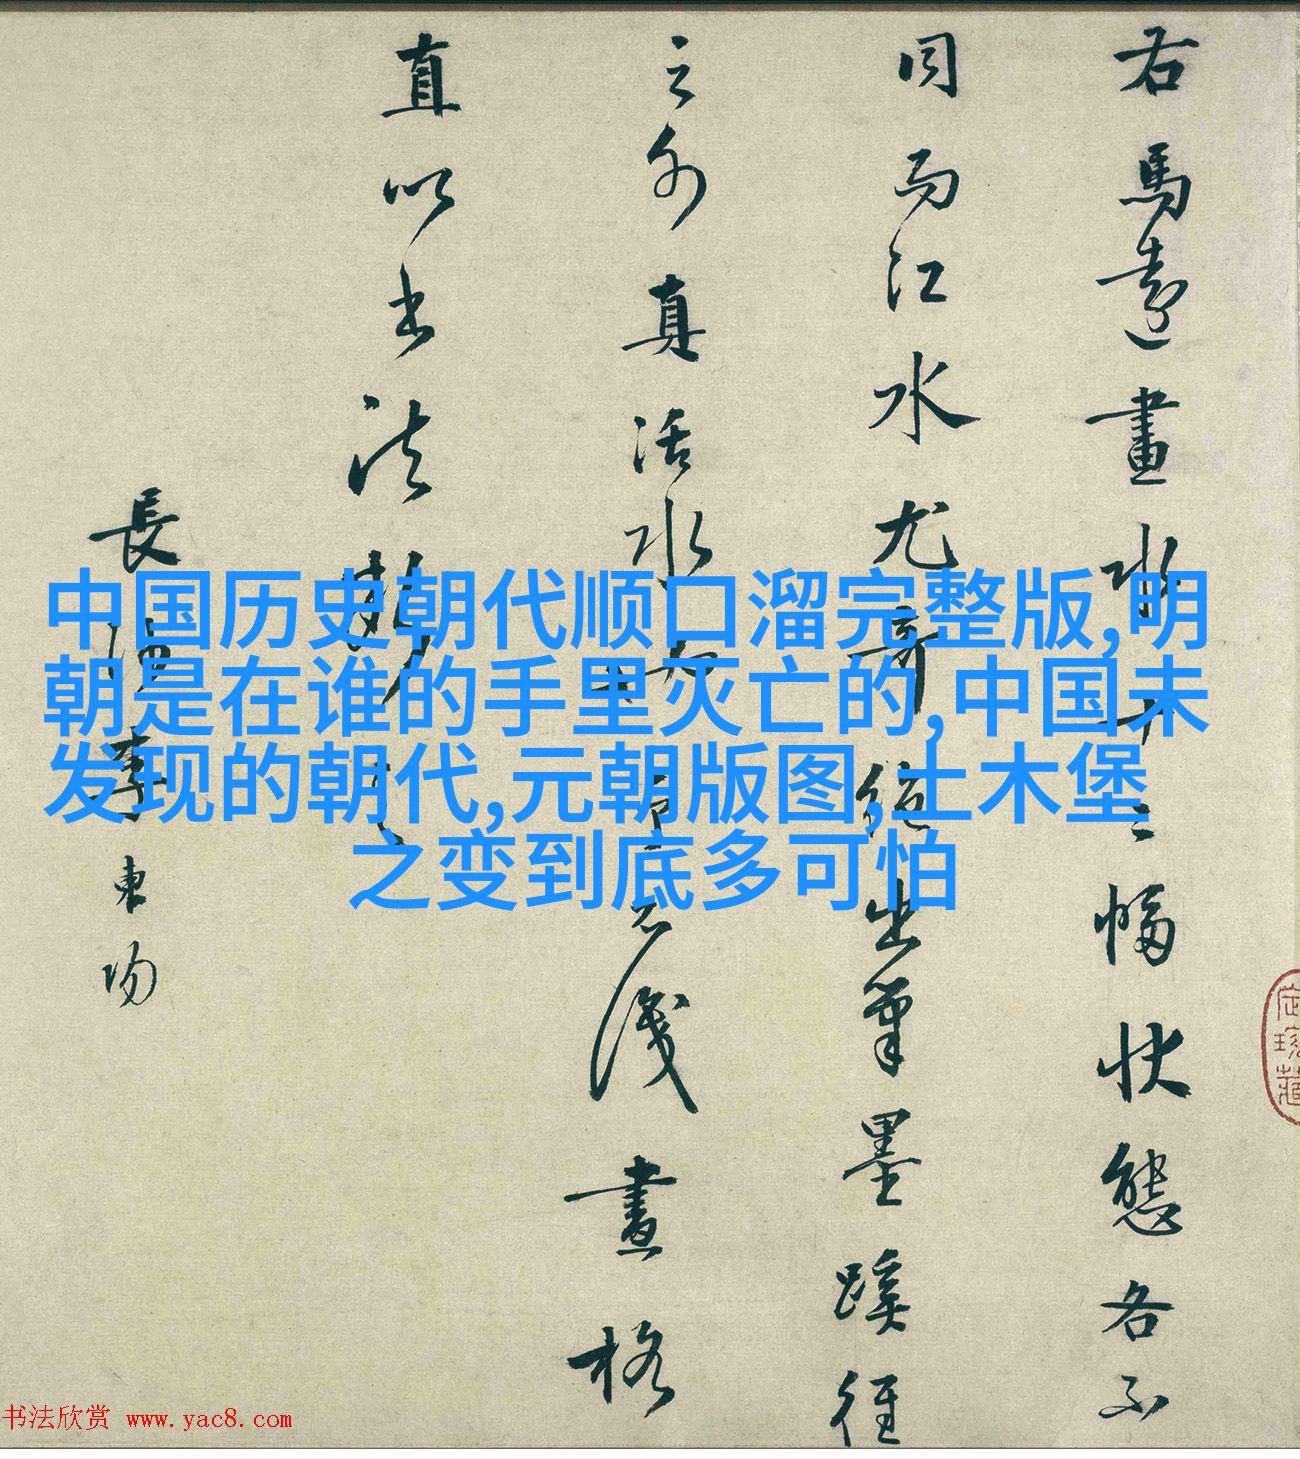 右馬遠畫水十二幅狀態各不
同而江水尤奇絕出筆墨蹊徑
之外真活水也予不識畫格
直以書法觀之
長沙李東陽
中国历史朝代顺口溜完整版,明
朝是在谁的手里灭亡的,中国未
发现的朝代,元朝版图,土木堡
之变到底多可怕
书法欣赏 www.yac8.com